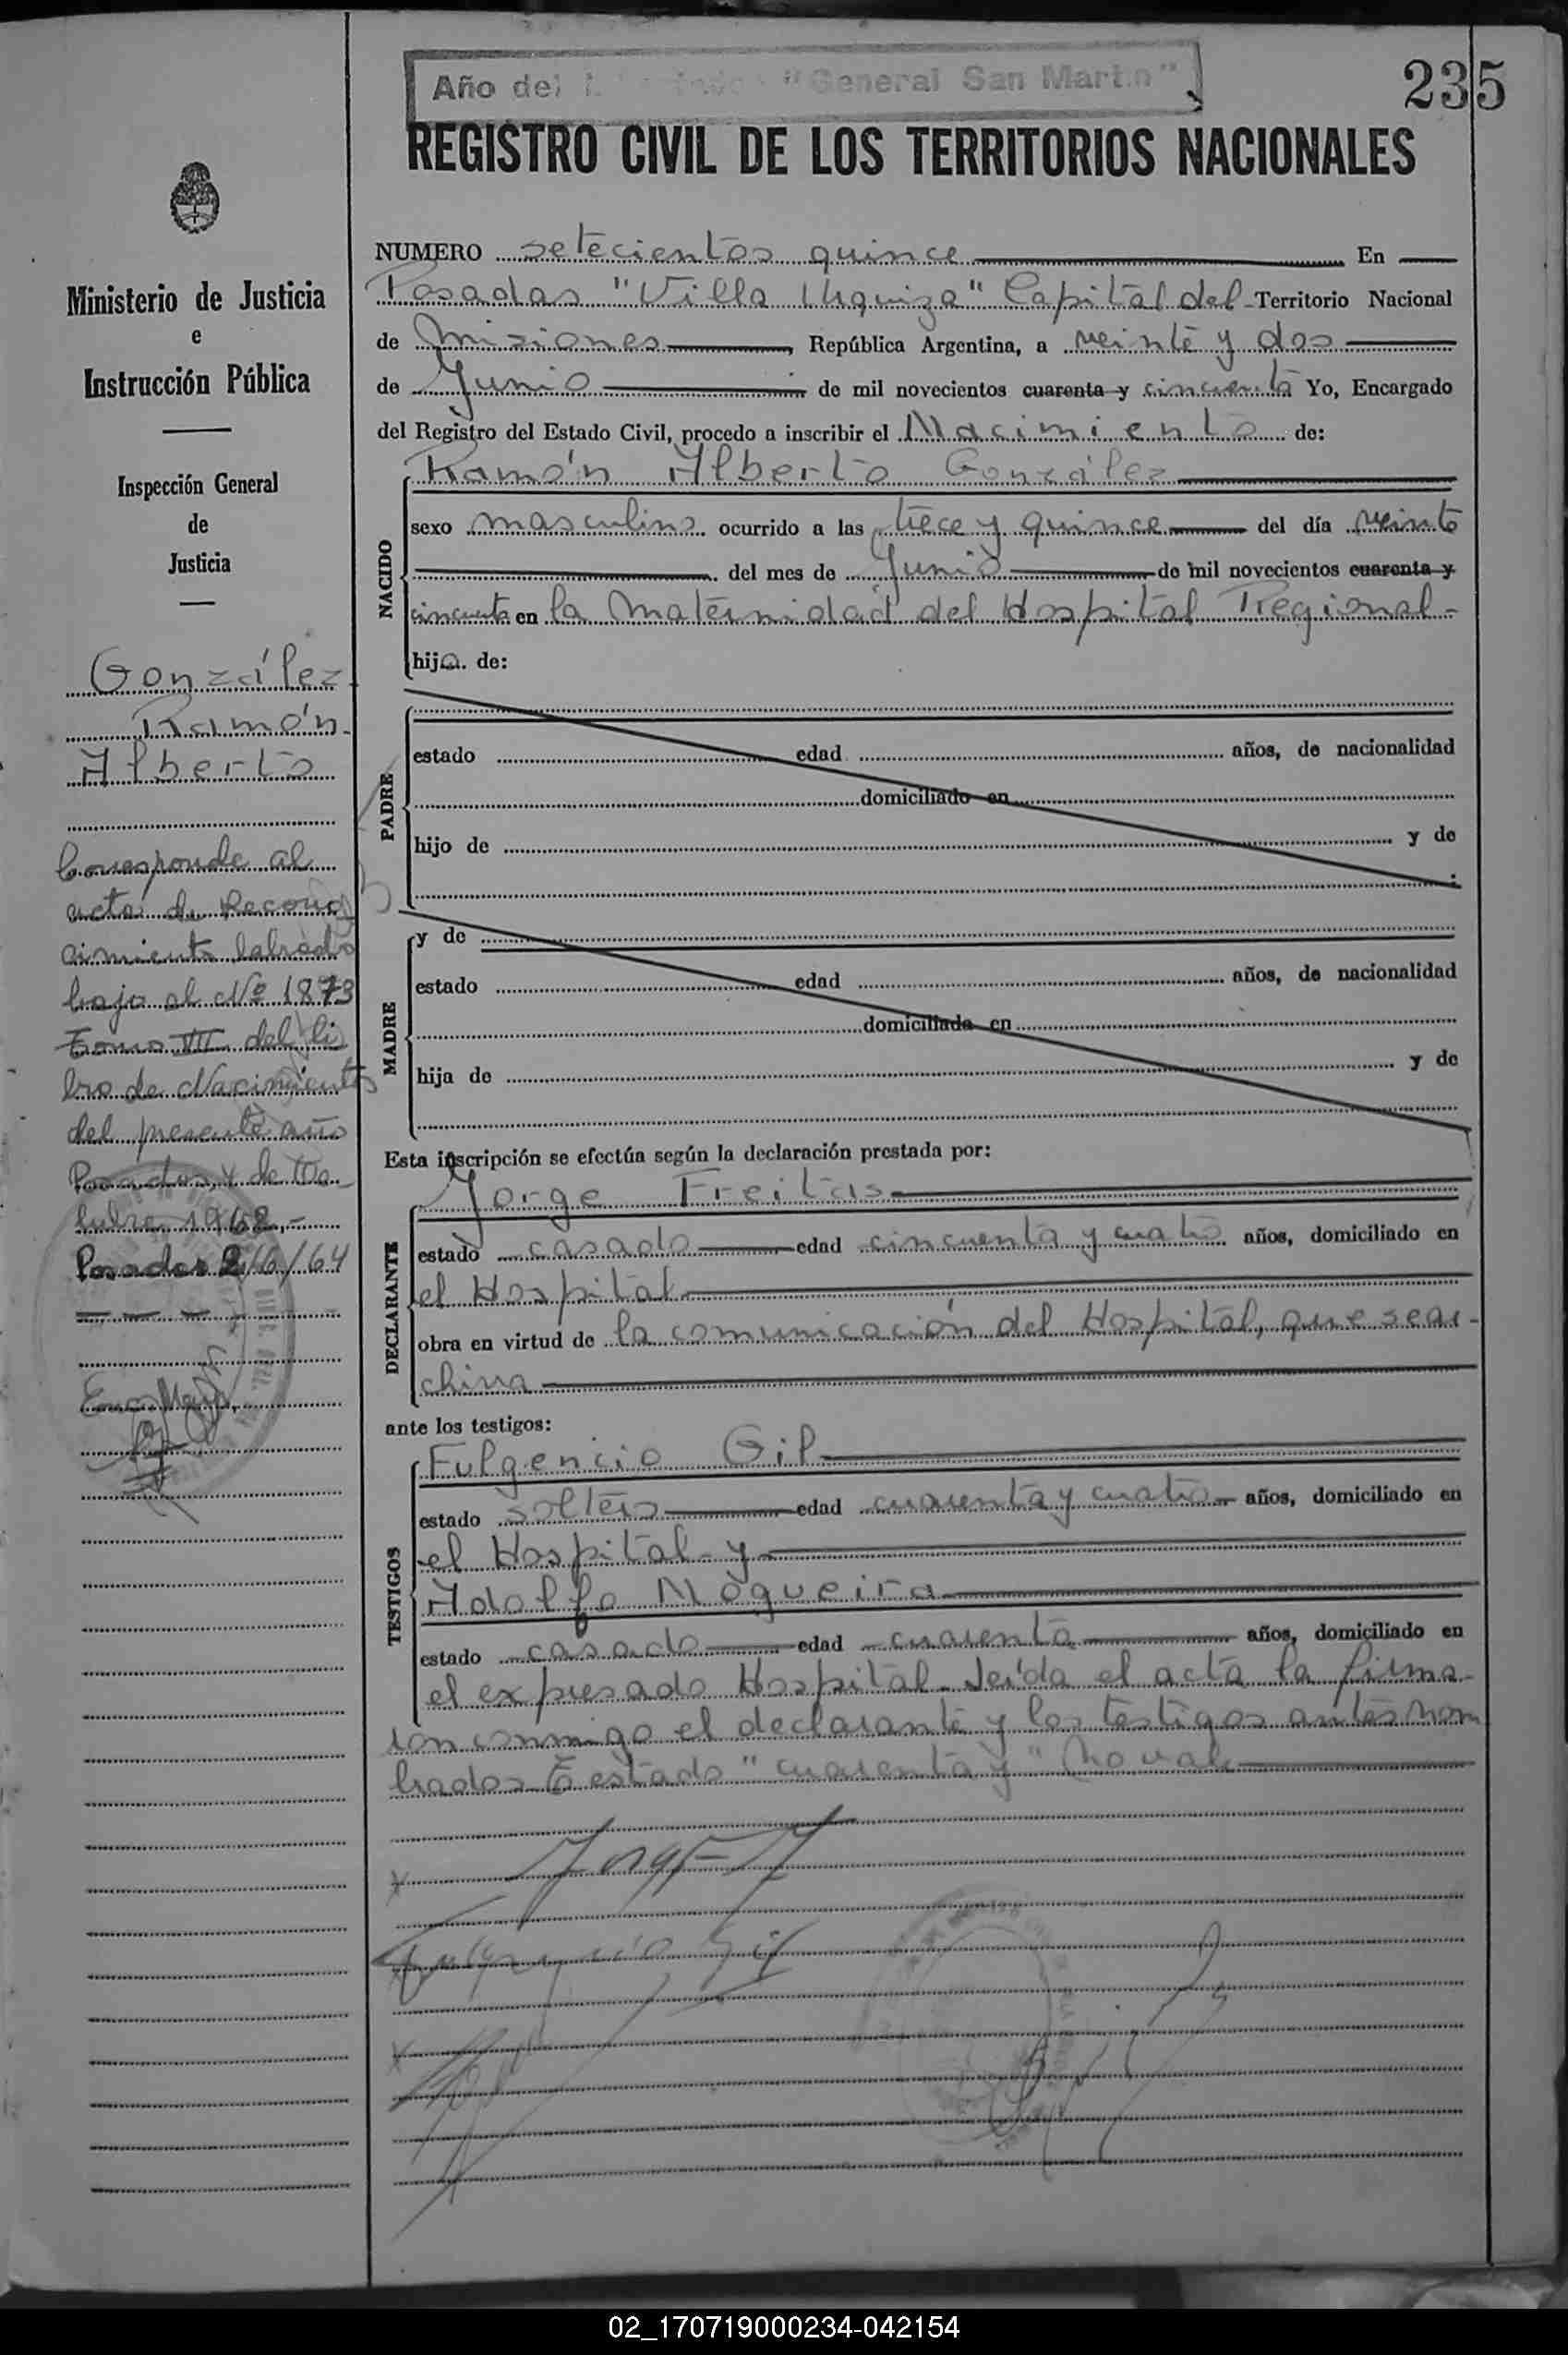 Año del "General San Martin"
235
REGISTRO CIVIL DE LOS TERRITORIOS NACIONALES
Ministerio de Justicia
e
Instrucción Pública
Inspección General
de
Justicia
González
Ramón
Alberto
Corresponde al
acta de Recono
cimiento labrado
bajo el Nº 1873
Tomo VII del li
bro de Nacimientos
del presente año
Posadas, y de Oc-
tubre 1962,-
Posadas 2/6/64
NUMERO setecientos quince En
Posadas "Villa Urquiza" Capital del Territorio Nacional
de Misiones, República Argentina, a veinte y dos
de Junio de mil novecientos cuarenta y cincuenta Yo, Encargado
del Registro del Estado Civil, procedo a inscribir el Nacimiento de:
Ramón Alberto González
NACIDO
sexo masculino ocurrido a las trece y quince del día veinte
del mes de Junio de mil novecientos cuarenta y
cincuenta en la Maternidad del Hospital Regional-
hijo de:
PADRE
estado edad años, de nacionalidad
domiciliado en
hijo de y de
MADRE
y de
estado edad años, de nacionalidad
domiciliada en
hija de y de
Esta inscripción se efectúa según la declaración prestada por:
Jorge Freitas
DECLARANTE
estado casado edad cincuenta y cuatro años, domiciliado en
el Hospital
obra en virtud de la comunicación del Hospital, que se ar-
chiva
ante los testigos:
Fulgencio Gil
TESTIGOS
estado soltero edad cuarenta y cuatro años, domiciliado en
el Hospital y
Adolfo Nogueira
estado casado edad cuarenta años, domiciliado en
el expresado Hospital. Leída el acta la firma-
ron conmigo el declarante y los testigos antes nom
brados. Testado "cuarenta y" No vale
Fulgencio Gil
02_170719000234-042154